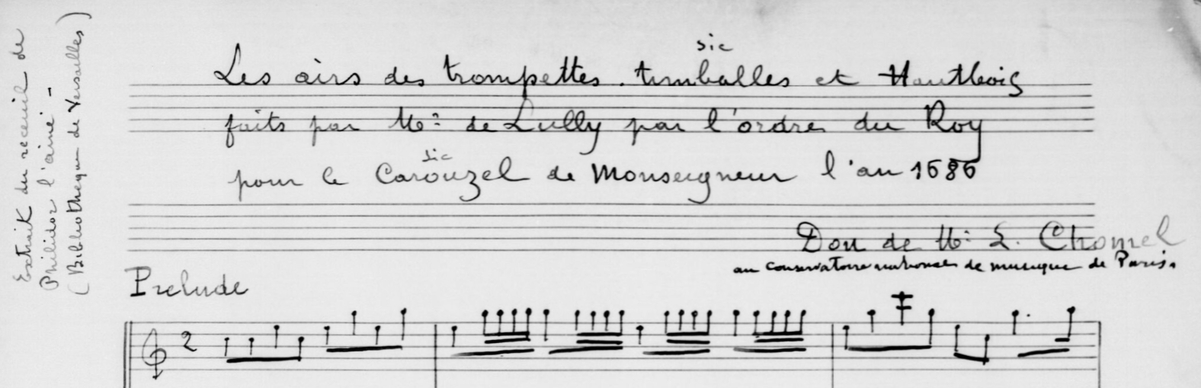 Extrait du recueil de
Philidor l'ainé -
(Bibliotheque de Versailles)
sic
Les airs des trompettes. timballes et Hautbois
faits par Mr: de Lully par l'ordre du Roy
sic
pour le Carouzel de Monseigneur l'an 1686
Don de Mr: L. Chomel
au conservatoire national de musique de Paris.
Prelude
2